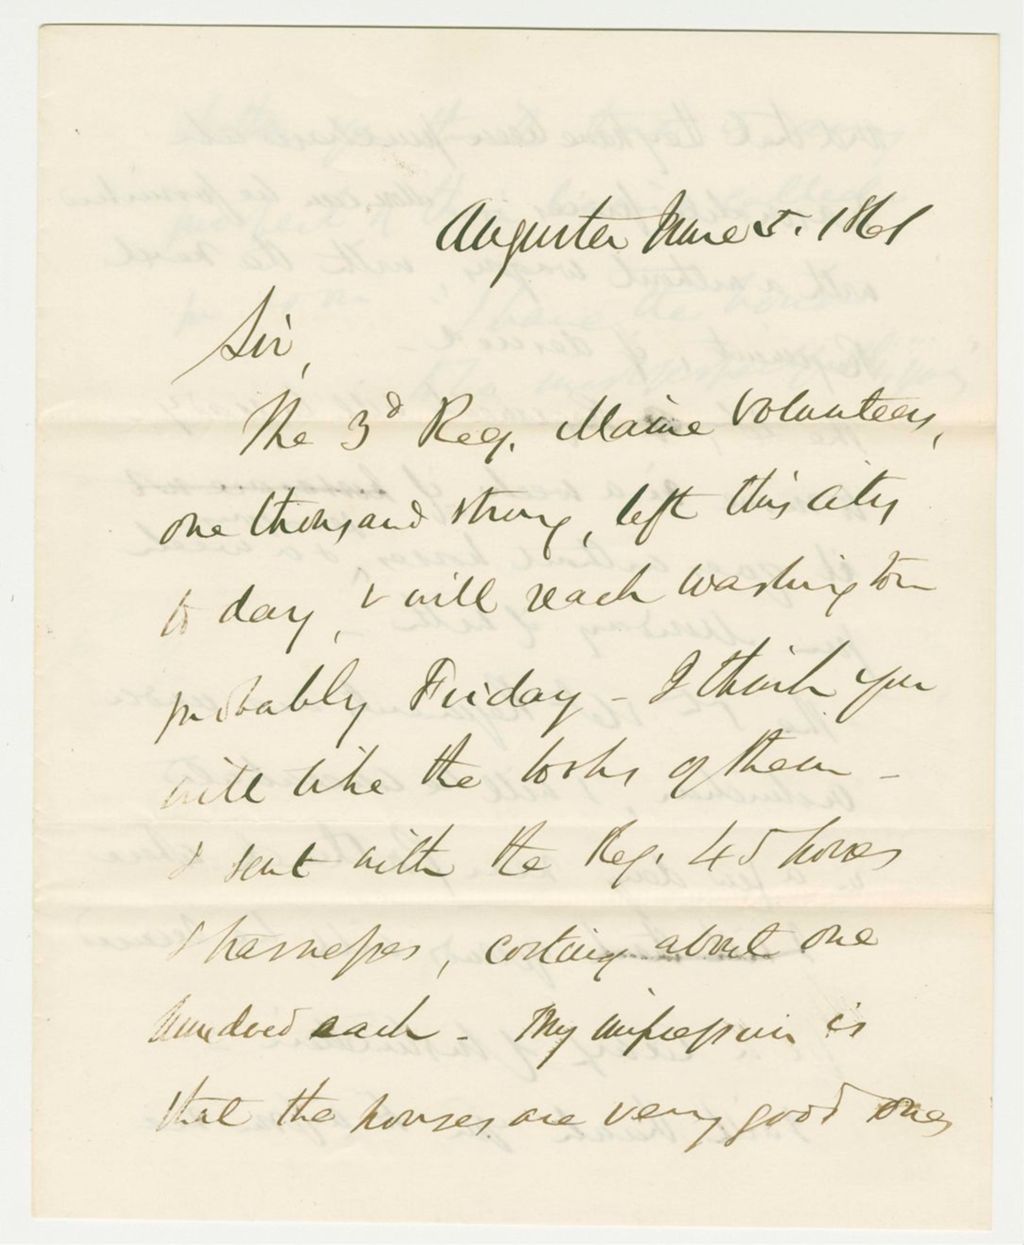 Augusta June 5. 1861
Sir,
The 3d Reg. Maine Volunteers,
one thousand strong, left this city
to day, & will reach Washington
probably Friday - I think you
will like the looks of them -
I sent with the Reg. 45 horses
& harnesses, costing about one
hundred each - My impression is
that the horses are very good ones